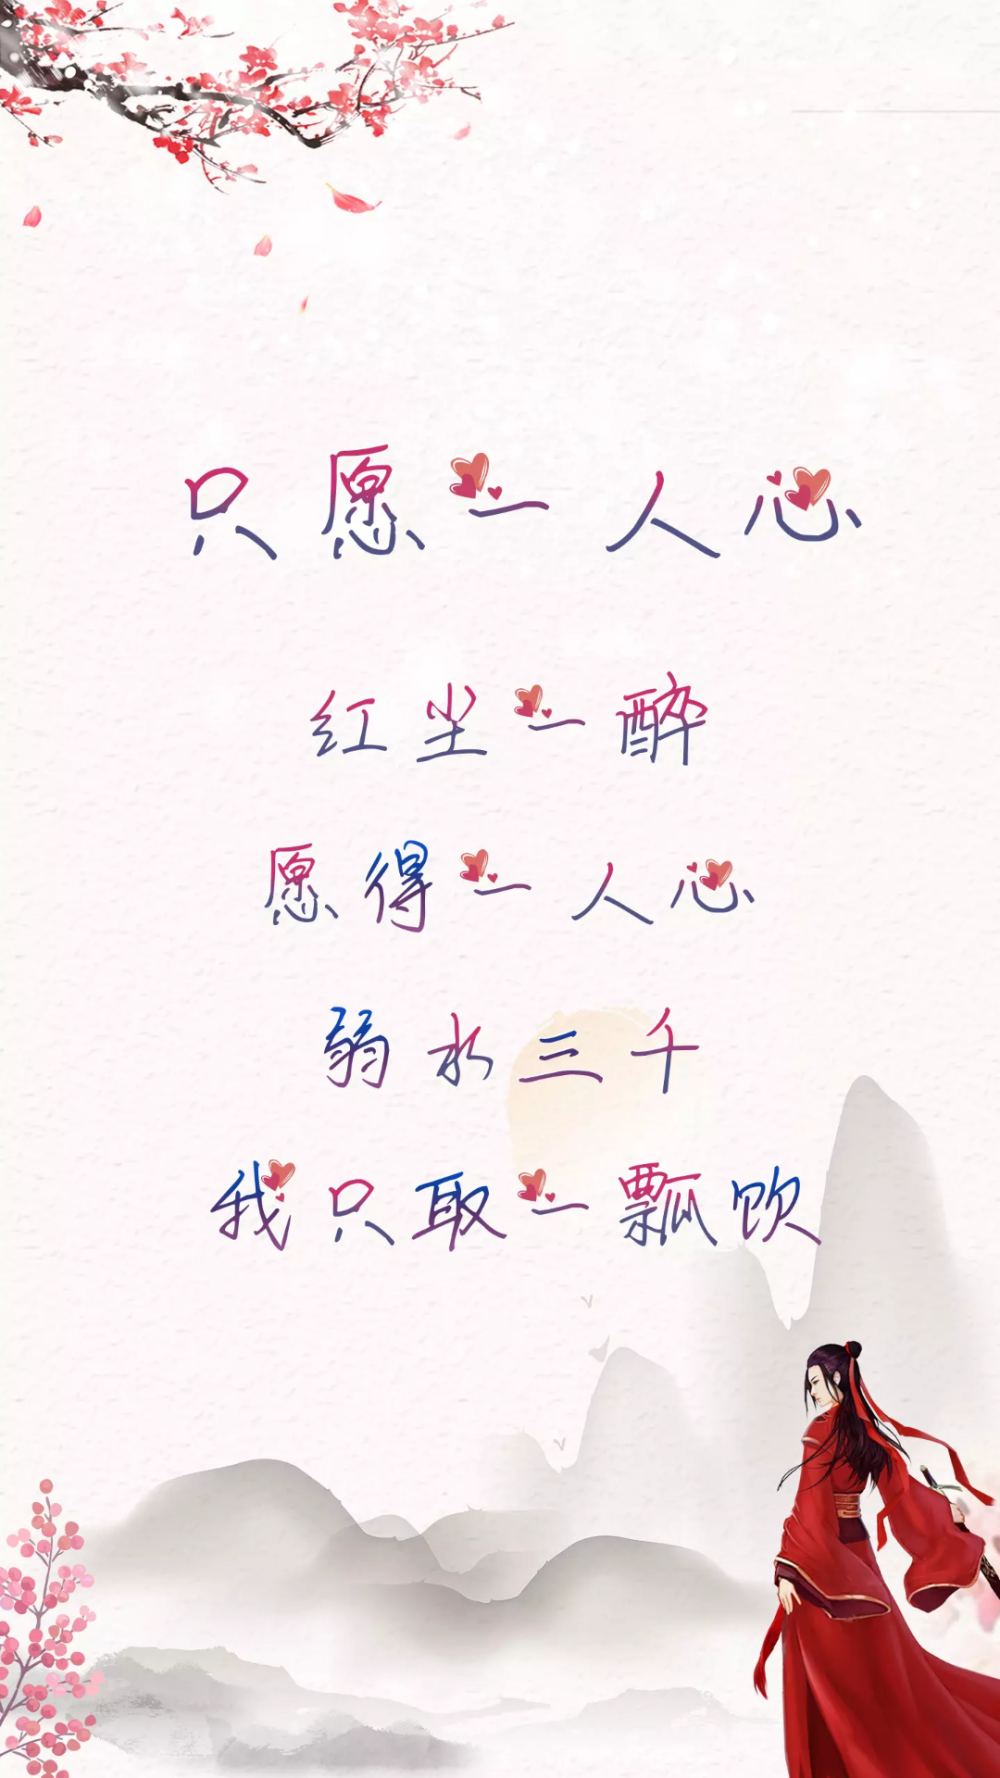 只愿一人心
红尘一醉
愿得一人心
弱水三千
我只取一瓢饮